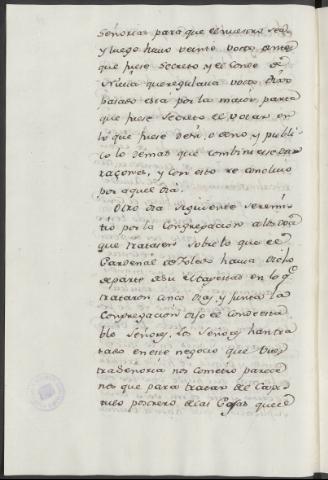 Señorias para que el nuestro sea
y luego hauo veinte votos antes
que fuese secreto y el Conde de
que regulaua votos Dijo
pasado està por la maior parte
que fuese secreto el votar en
lo que fuese de si, o de no, y publi
co lo demas que combiniese dar
raçones, y con esto se concluio
por aquel dia.
Otro dia siguiente se remi
tiò por la Congregacion a los doce
que tratasen sobre lo que el
Cardenal de Toledo hauia dicho
de parte de su Magestad en lo ql
trataron cinco dias, y junta la
Congregacion dijo el Condesta
ble Señores, los Señores han tra
tado en este negocio que Vues
tra Señoria nos cometio parece
nos que para tratar del Capi
tulo postrero de las Cosas que el